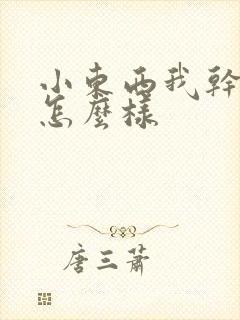 小東西我幹
怎麼樣
唐三蕭